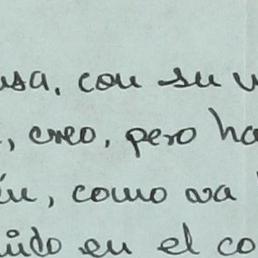 usa, con su v
, creo, pero ha
én, como va
uido en el co